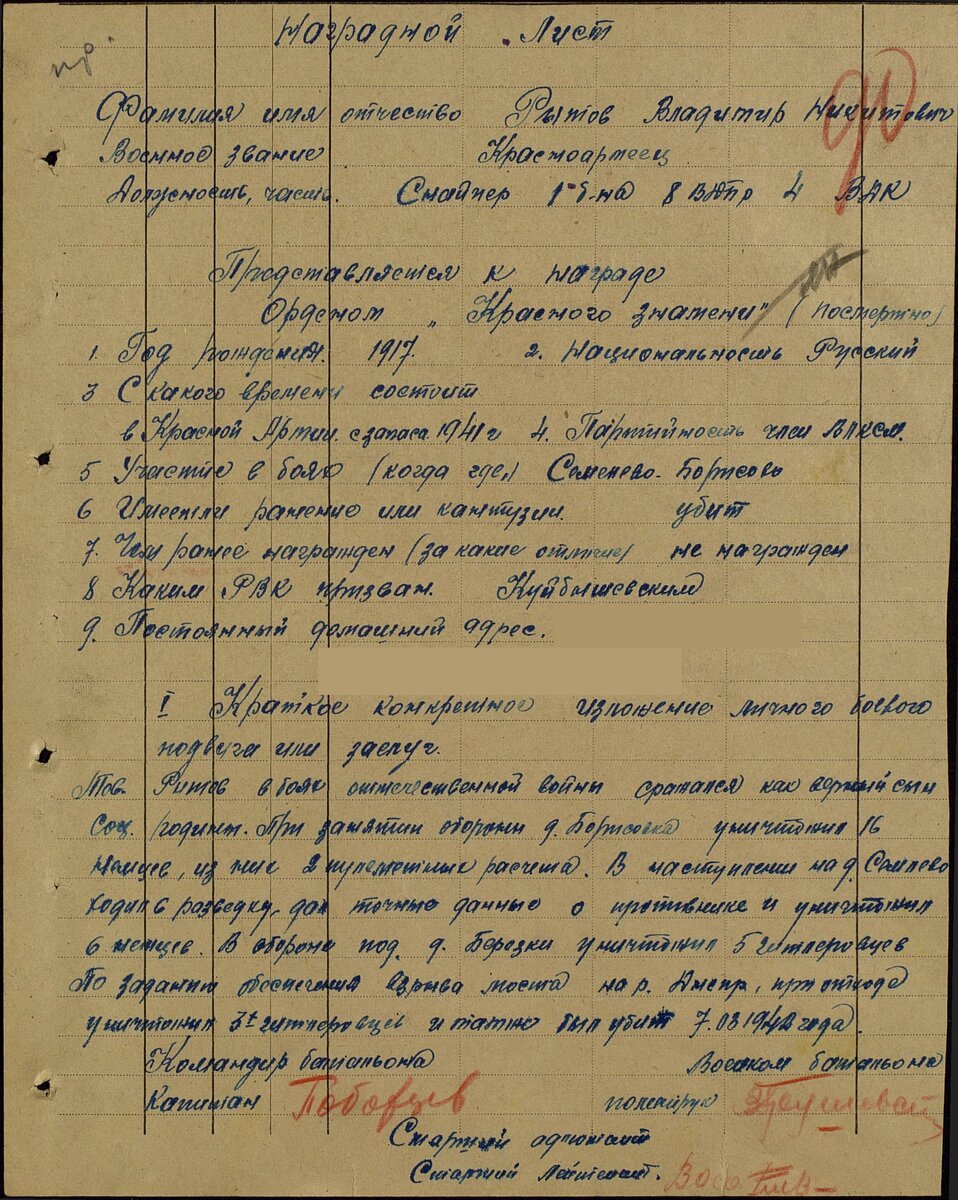 Наградной Лист
пр.
90
Фамилия имя отчество Рытов Владимир Никитович
Военное звание Красноармеец
Должность, часть. Снайпер 1 б-на 8 ВДбр 4 ВДК
Представляется к награде
Орденом „Красного знамени" (посмертно)
1. Год рождения. 1917. 2. Национальность Русский
3 С какого времени состоит
в Красной Армии. с запаса 1941 г 4. Партийность член ВЛКСМ.
5 Участие в боях (когда где,) Семлево-Борисово
6 Имеет ли ранение или кантузии. убит
7. Чем ранее награжден (за какие отличие) не награжден
8 Каким РВК призван. Куйбышевским
9. Постоянный домашний адрес.
I Краткое конкретное изложение личного боевого
подвига или заслуг.
Тов. Рытов в боях отечественной войны сражался как верный сын
Соц. родины. При занятии обороны д. Борисовка уничтожил 16
немцев, из них 2 пулеметных расчета. В наступлении на д. Семлево
ходил в разведку, дал точные данные о противнике и уничтожил
6 немцев. В обороне под д. Березки уничтожил 5 гитлеровцев
По заданию обеспечения взрыва моста на р. Днепр, при отходе
уничтожил 3х гитлеровцев и также был убит 7.03 1942 года.
Командир батальона Военком батальона
Капитан Побовцев политрук
Старший адютант
Старший Лейтенант.